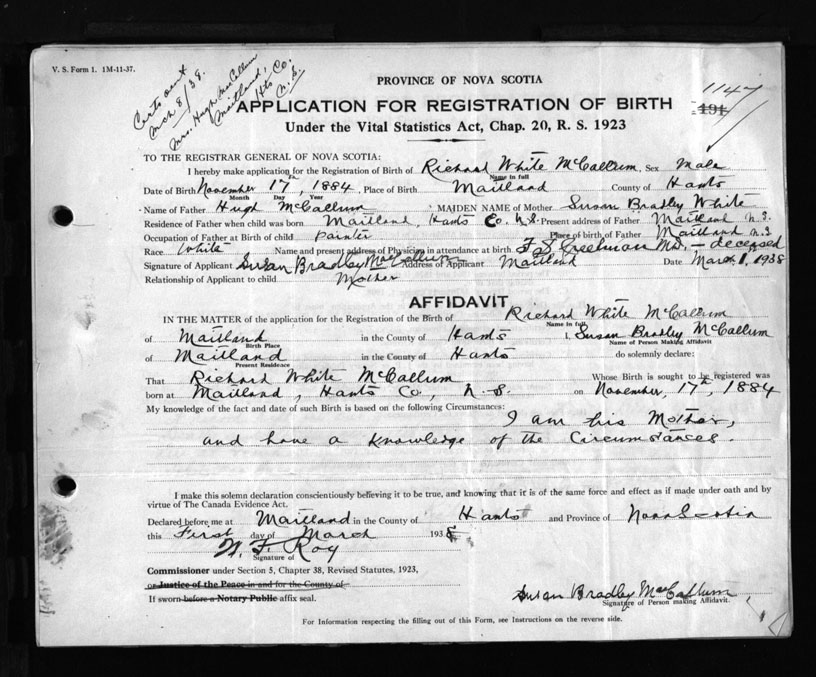 V. S. Form 1. 1M-11-37.
Certs out
Mch 8/38.
Mrs. Hugh McCallum
Maitland,
Hts Co.
N.S.
PROVINCE OF NOVA SCOTIA
1147
APPLICATION FOR REGISTRATION OF BIRTH
191
Under the Vital Statistics Act, Chap. 20, R. S. 1923
TO THE REGISTRAR GENERAL OF NOVA SCOTIA:
I hereby make application for the Registration of Birth of Richard White McCallum, Sex Male
Name in full
Date of Birth November 17th, 1884, Place of Birth Maitland County of Hants
Month Day Year
Name of Father Hugh McCallum MAIDEN NAME of Mother Susan Bradley White
Residence of Father when child was born Maitland, Hants Co. N.S. Present address of Father Maitland N.S.
Occupation of Father at Birth of child painter Place of birth of Father Maitland N.S
Race White Name and present address of Physician in attendance at birth. F S Creelman MD. – deceased
Signature of Applicant Susan Bradley MacCallum Address of Applicant Maitland Date Mar. 1, 1938
Relationship of Applicant to child Mother
AFFIDAVIT
IN THE MATTER of the application for the Registration of the Birth of Richard White McCallum
Name in full
of Maitland in the County of Hants I, Susan Bradley McCallum
Birth Place Name of Person Making Affidavit
of Maitland in the County of Hants do solemnly declare:
Present Residence
That Richard White McCallum Whose Birth is sought to be registered was
born at Maitland, Hants Co., N.S. on November, 17th, 1884
My knowledge of the fact and date of such Birth is based on the following Circumstances:
I am his Mother,
and have a knowledge of the Circumstances.
I make this solemn declaration conscientiously believing it to be true, and knowing that it is of the same force and effect as if made under oath and by
virtue of The Canada Evidence Act.
Declared before me at Maitland in the County of Hants and Province of Nova Scotia
this First day of March 1938
W. F. Roy
Signature of
Commissioner under Section 5, Chapter 38, Revised Statutes, 1923,
or Justice of the Peace in and for the County of
If sworn before a Notary Public affix seal.
Susan Bradley MacCallum
Signature of Person making Affidavit.
For Information respecting the filling out of this Form, see Instructions on the reverse side.